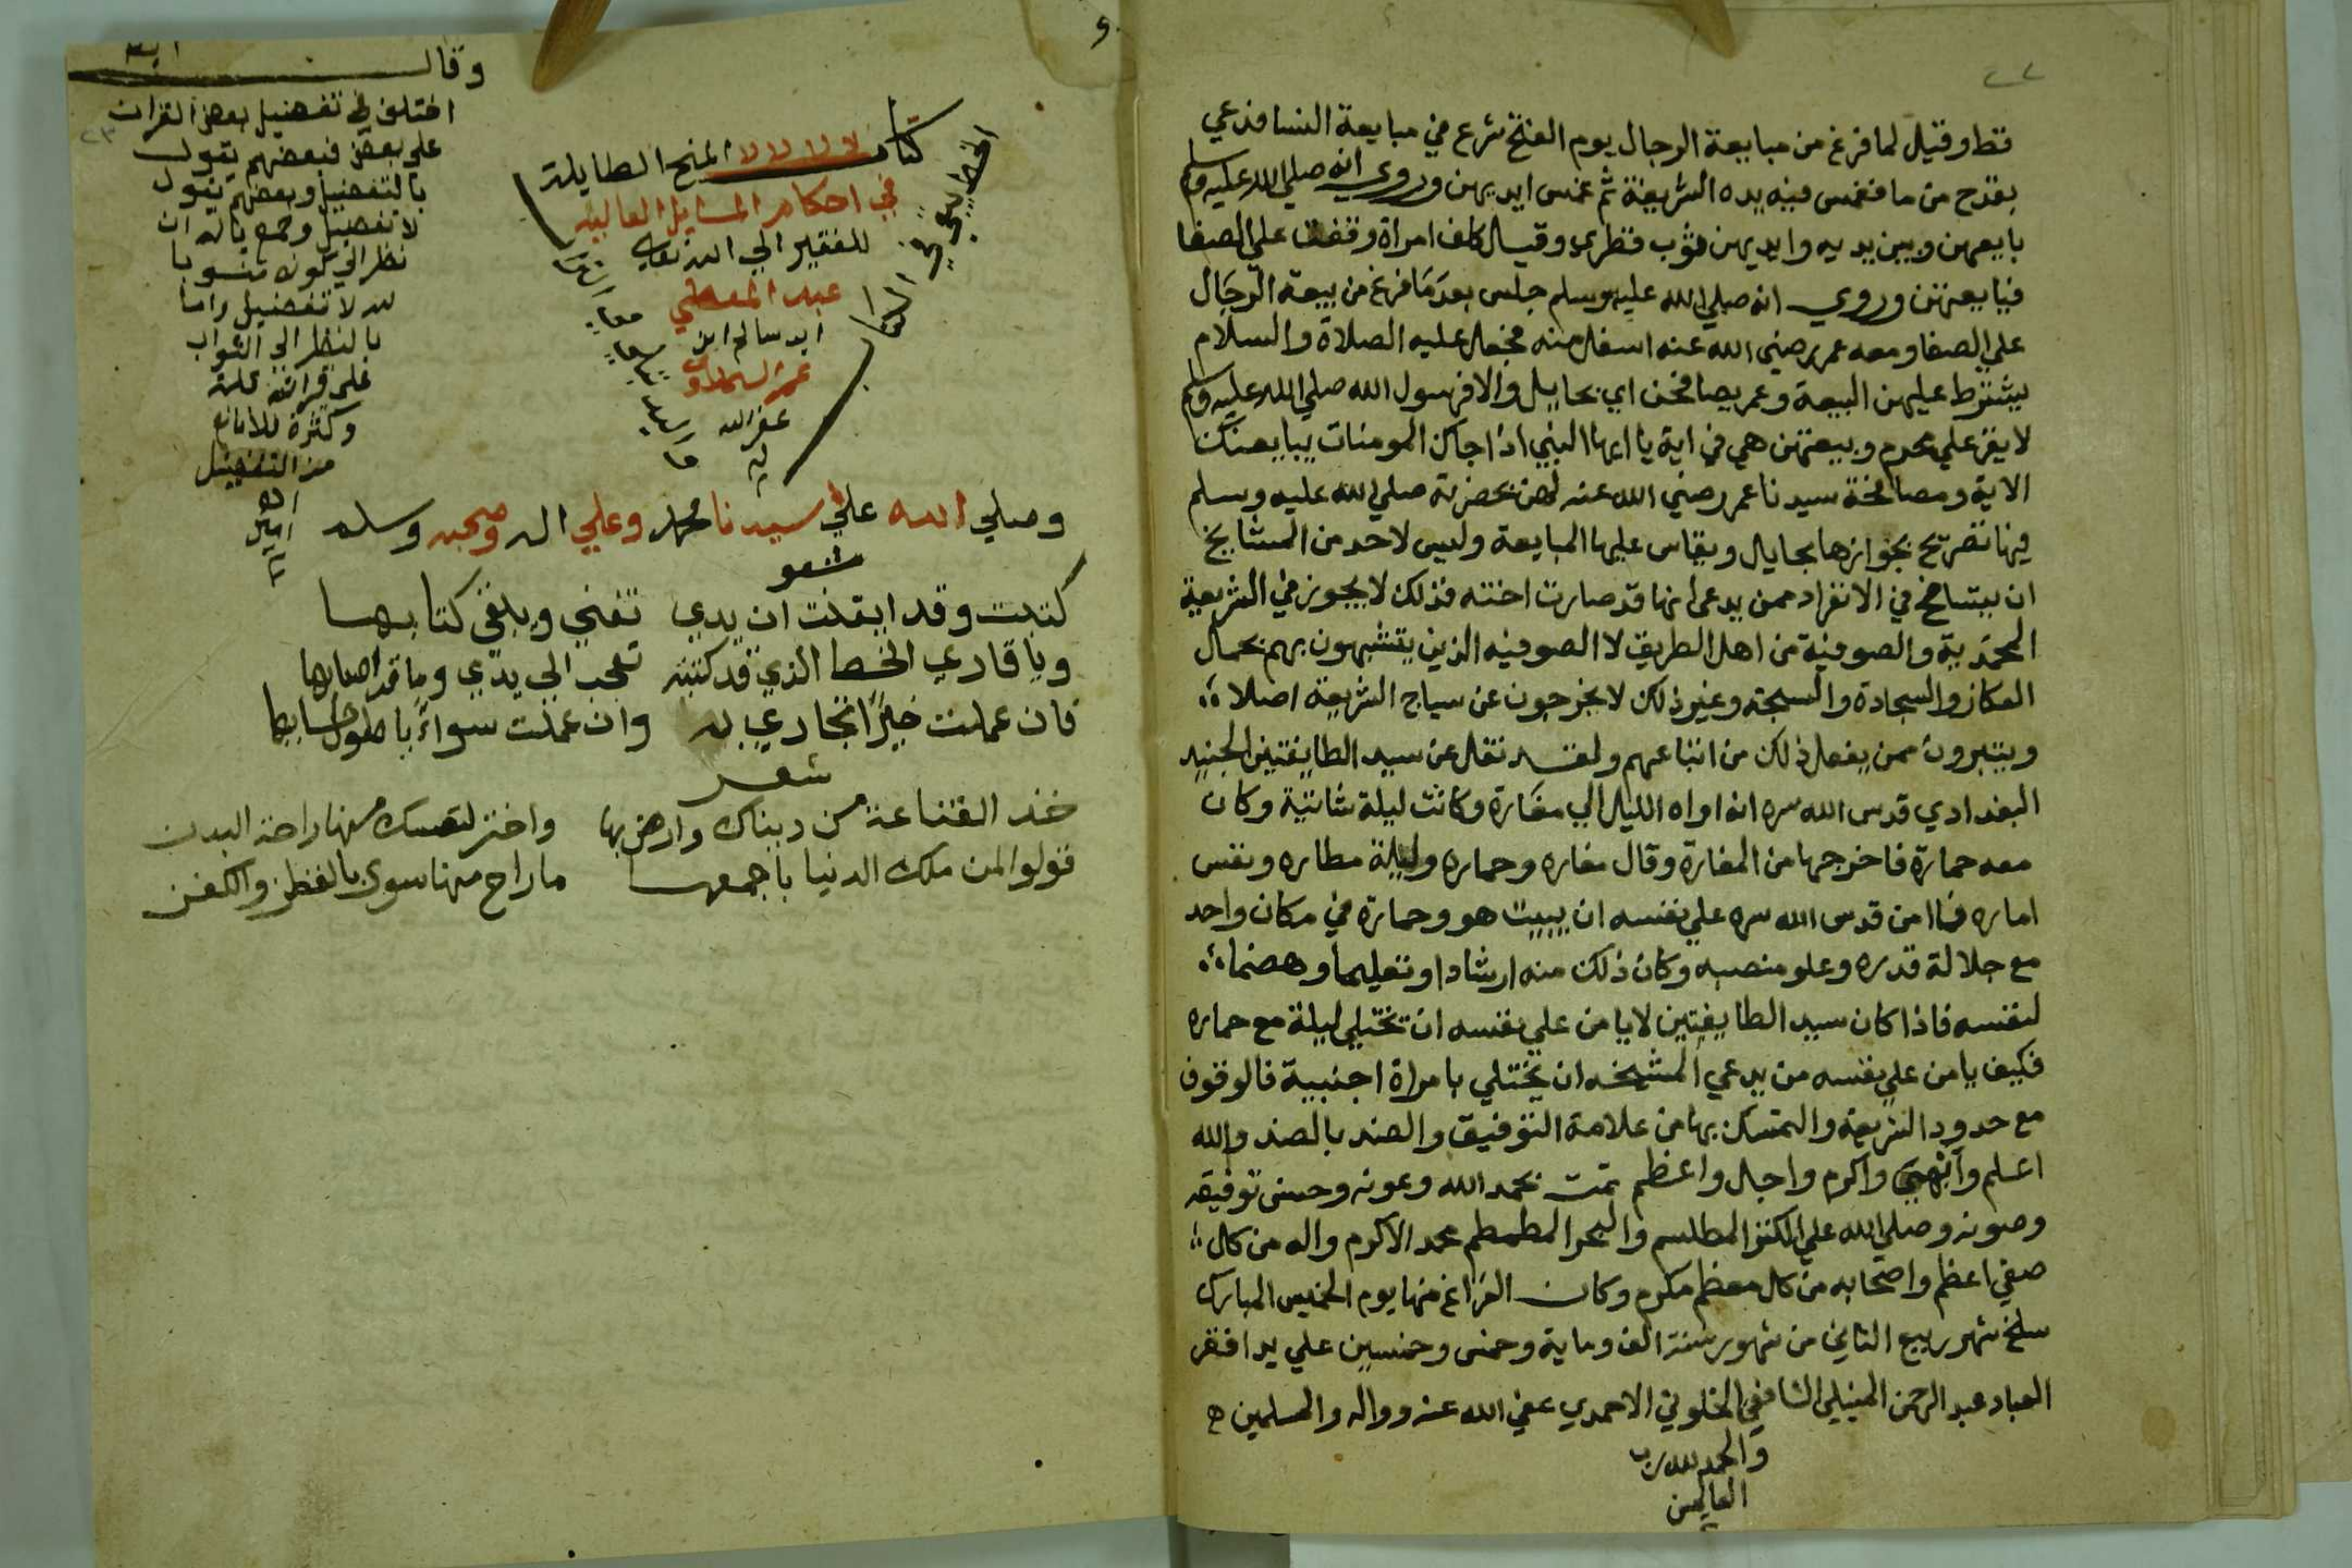 قط وقيل لما فرغ من مبايعة الرجال يوم الفتح شرع في مبايعة النسا فدعي
بقدح من ما فغمس فيه يده الشريفة ثم غمس ايديهن وروي انه صلي الله عليه وسلم
بايعهن وبين يديه وايديهن ثوب قطري وقيل كلف امراة وقفت علي الصفا
فبايعهن وروي انه صلي الله عليه وسلم جلس بعد ما فرغ من بيعة الرجال
علي الصفا ومعه عمر رضي الله عنه اسفل منه فجعل عليه الصلاة والسلام
يشترط عليهن البيعة وعمر يصافحهن اي بحايل والا فرسول الله صلي الله عليه وسلم
لا يقر علي محرم وبيعتهن هي في اية يا ايها النبي اذا جاك المومنات يبايعنك
الاية ومصافحة سيدنا عمر رضي الله عنه لهن بحضرته صلي الله عليه وسلم
فيها تصريح بجوازها بحايال ويقاس عليها المبايعة وليس لاحد من المشايخ
ان يتسامح في الانفراد ممن يدعي انها قد صارت اخته فذلك لا يجوز في الشريعة
المحمدية والصوفية من اهل الطريق لا الصوفيه الذين يتشبهون بهم بحمال
العكاز والسجادة والسبحة وغير ذلك لا يخرجون عن سياج الشريعة اصلا
ويتبرون ممن يفعل ذلك من اتباعهم ولقد نقل عن سيد الطايفتين الجنيد
البغدادي قدس الله سره انه اواه الليل الي مغارة وكانت ليلة شاتية وكان
معه حمارة فاخرجها من المغارة وقال مغاره وحماره وليلة مطاره ونفس
اماره فما امن قدس الله سره علي نفسه ان يبيت هو وحمارة في مكان واحد
مع جلالة قدره وعلو منصبه وكان ذلك منه ارشادا وتعليما وهضما
لنفسه فاذا كان سيد الطايفتين لا يامن علي نفسه ان تختلي ليلة مع حماره
فكيف يامن علي نفسه من يدعي المشيخه ان يختلي بامراة اجنبية فالوقوف
مع حدود الشريعة والتمسك بها من علامة التوفيق والضد بالضد والله
اعلم وابهي واكرم واجل واعظم تمت بحمد الله وعونه وحسن توفيقه
وصونه وصلي الله علي الكنز المطلسم والبحر المطمطم محمد الاكرم واله من كل
صفي اعظم واصحابه من كل معظم مكرم وكان الفراغ منها يوم الخميس المبارك
سلخ شهر ربيع الثاني من شهور سنة الف وماية وخمس وخمسين علي يد افقر
العباد عبد الرحمن المنيلي الشافعي الخلوتي الاحمدي عفي الله عنه ووالد والمسلمين
والحمد لله رب
العالمين
وقال
اختلف في تفضيل بعض القران
علي بعض فبعضهم يقول
بالتفضيل وبعضهم يقول
لا تفضيل وجمع بانه ان
نظر الي كونه منسوبا
لله لا تفضيل واما
بالنظر الي الثواب
علي قراته قلة
وكثرة فلا مانع
من التفضيل
كتاب المنح الطايلة
في احكام المسايل العاليه
للفقير الي الله تعالي
عبد المعطي
ابن سالم ابن
عمر السملاوي
غفر الله
له
وصلي الله علي سيدنا محمد وعلي اله وصحبه وسلم
شعر
كتبت وقد ايقنت ان يدي تفني ويبقي كتابها
ويا قاري الخط الذي قد كتبته تعجب الي يدي وما قد اصابها
فان عملت خيرا تجازي به وان عملت سواء يا طول حسابها
شعر
خذ القناعة من دنياك وارض بها واختر لنفسك منها راحة البدن
فولوا لمن ملك الدنيا باجمعها ما راح منها سوي بالقطن والكفن